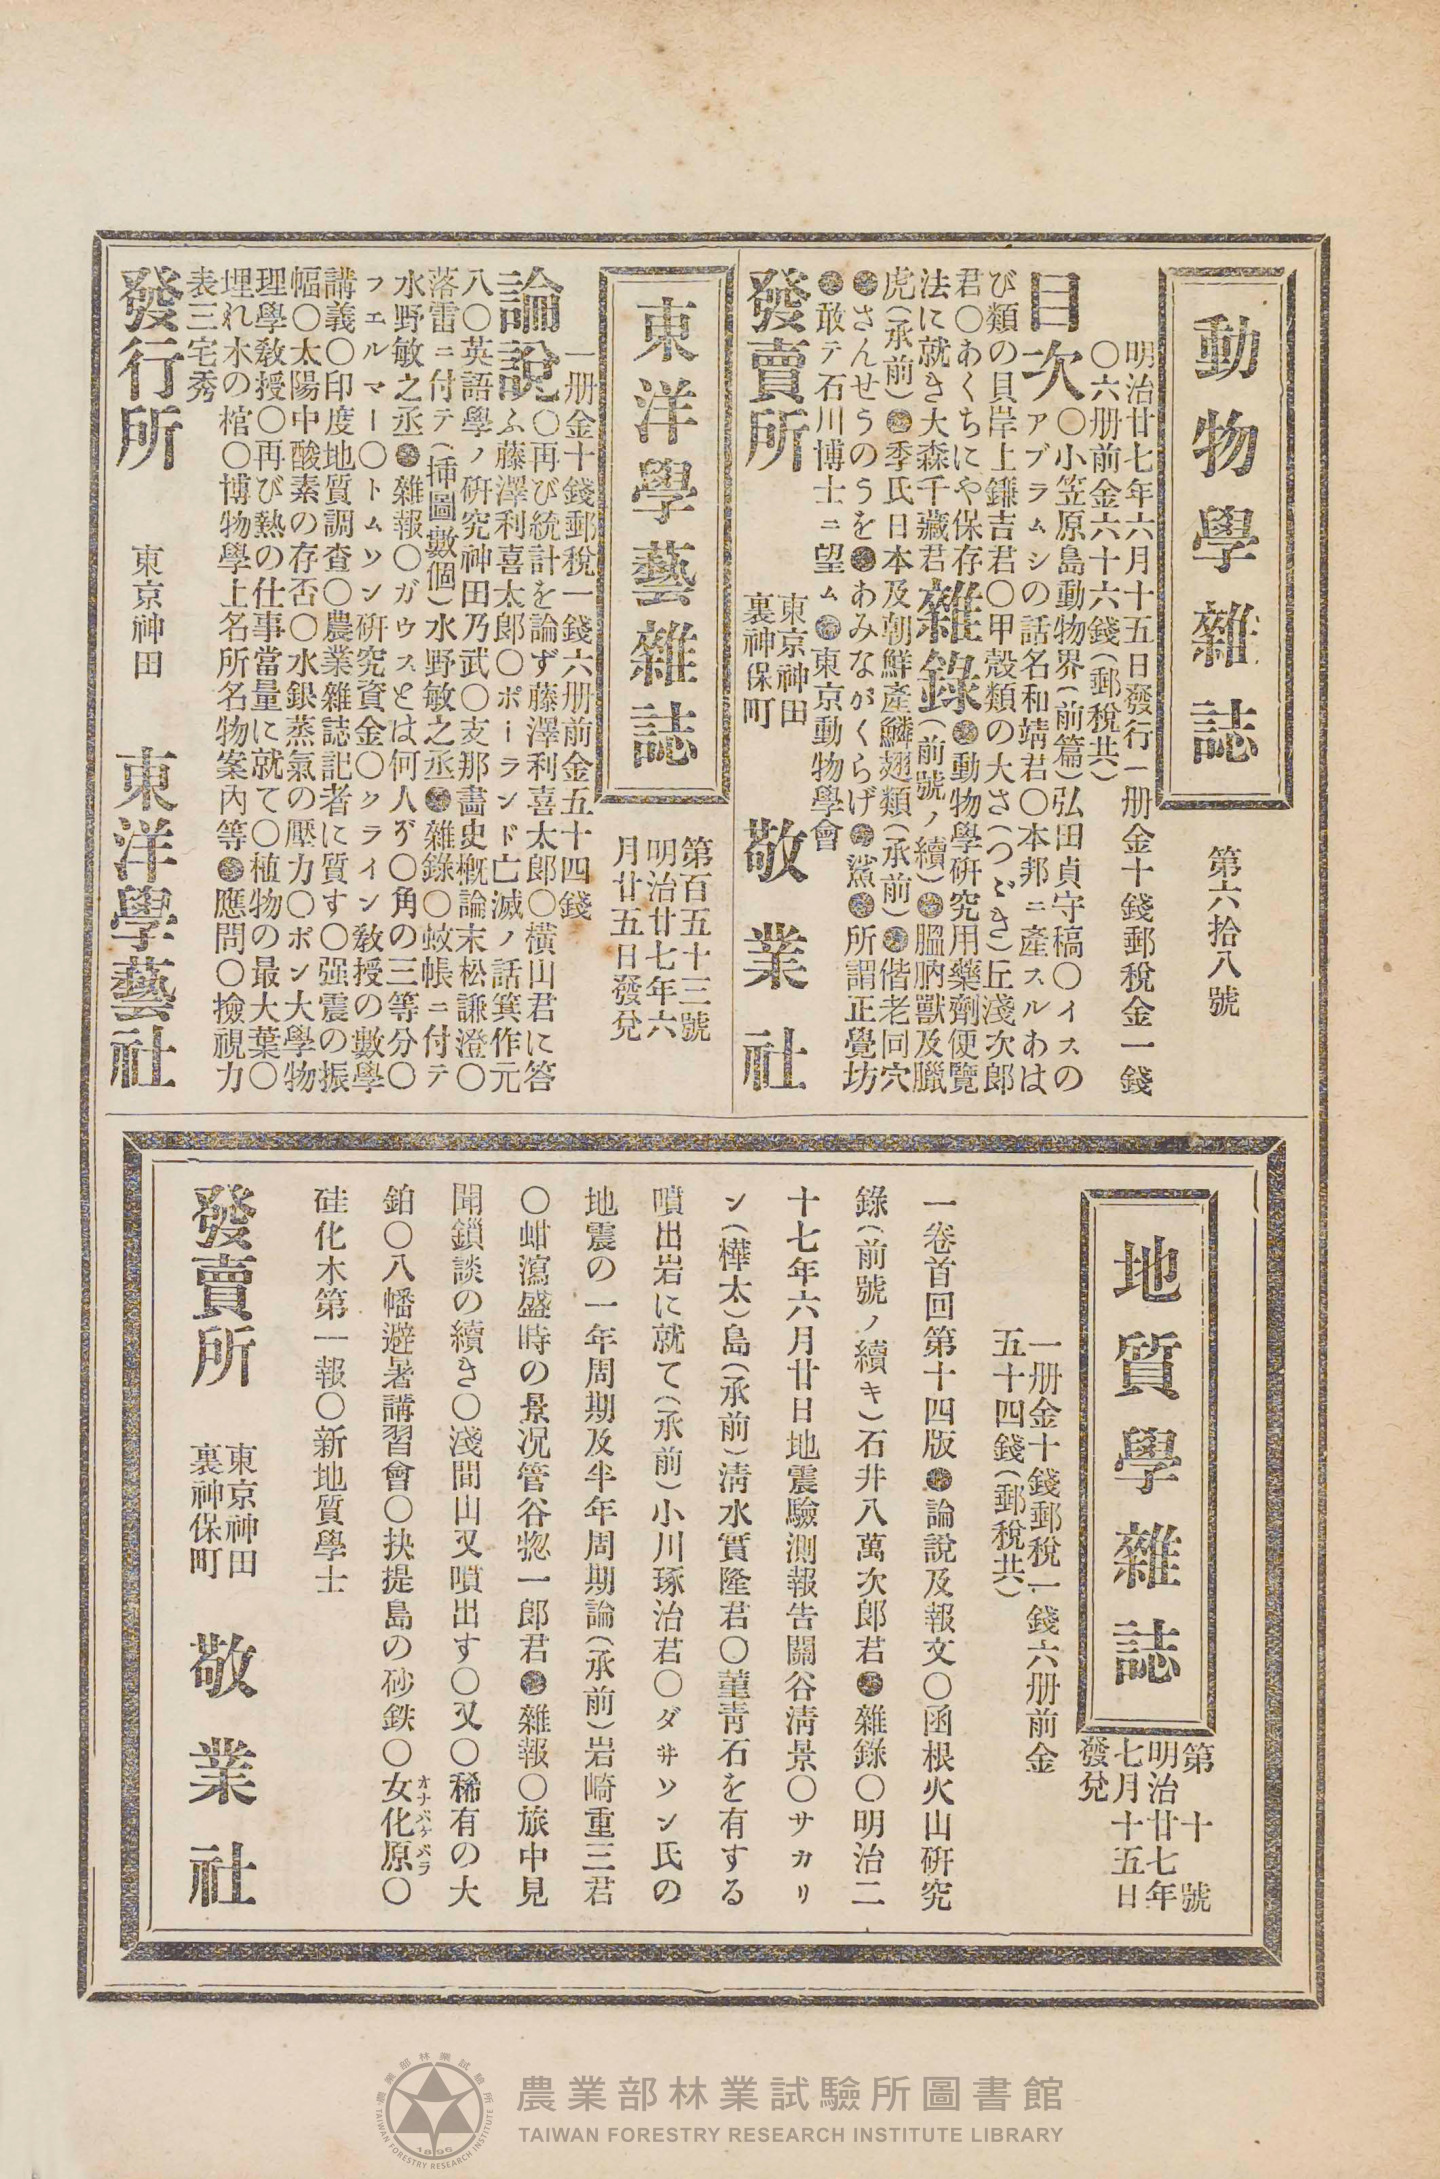 動物學雜誌
第六拾八號
明治廿七年六月十五日發行一册金十錢郵稅金一錢
〇六册前金六十六錢(郵稅共)
目次〇小笠原島動物界(前篇)弘田貞守稿〇イスの
アブラムシの話名和靖君〇本邦ニ產スルあは
び類の貝岸上鎌吉君〇甲殼類の大さ(つゞき)丘淺次郎
君〇あくちにや保存
法に就き大森千藏君雜錄(前號ノ續)●動物學硏究用藥劑便覽
●膃肭獸及臘
虎(承前)●季氏日本及朝鮮產鱗翅類(承前)●偕老同穴
●さんせうのうを●あみながくらげ●鯊●所謂正覺坊
●敢テ石川博士ニ望ム●東京動物學會
發賣所
東京神田
裏神保町
敬業社
東洋學藝雜誌
第百五十三號
明治廿七年六
月廿五日發兌
一册金十錢郵稅一錢六册前金五十四錢
論說〇再び統計を論ず藤澤利喜太郎〇橫山君に答
ふ藤澤利喜太郎〇ポーランド亡滅ノ話箕作元
八〇英語學ノ硏究神田乃武〇支那畵史槪論末松謙澄〇
落雷ニ付テ(揷圖數個)水野敏之丞●雜錄〇蚊帳ニ付テ
水野敏之丞●雜報〇ガウスとは何人ぞ〇角の三等分〇
フエルマー〇トムソン硏究資金〇クライン敎授の數學
講義〇印度地質調査〇農業雜誌記者に質す〇强震の振
幅〇太陽中酸素の存否〇水銀蒸氣の壓力〇ポン大學物
理學敎授〇再び熱の仕事當量に就て〇植物の最大葉〇
埋れ木の棺〇博物學上名所名物案內等●應問〇撿視力
表三宅秀
發行所
東京神田
東洋學藝社
地質學雜誌
第十號
明治廿七年
七月十五日
發兌
一册金十錢郵稅一錢六册前金
五十四錢(郵稅共)
一卷首回第十四版●論說及報文〇函根火山硏究
錄(前號ノ續キ)石井八萬次郎君●雜錄〇明治二
十七年六月廿日地震驗測報告關谷淸景〇サカリ
ン(樺太)島(承前)淸水實隆君〇菫靑石を有する
噴出岩に就て(承前)小川琢治君〇ダ井ソン氏の
地震の一年周期及半年周期論(承前)岩崎重三君
〇蚶瀉盛時の景况管谷惣一郎君●雜報〇旅中見
聞鎖談の續き〇淺間山又噴出す〇又〇稀有の大
鉑〇八幡避暑講習會〇抉提島の砂鉄〇女化原〇
オナバケバラ
硅化木第一報〇新地質學士
發賣所
東京神田
裏神保町
敬業社
農業部林業試驗所圖書館
TAIWAN FORESTRY RESEARCH INSTITUTE LIBRARY
農業部林業試驗所
TAIWAN FORESTRY RESEARCH INSTITUTE
1896